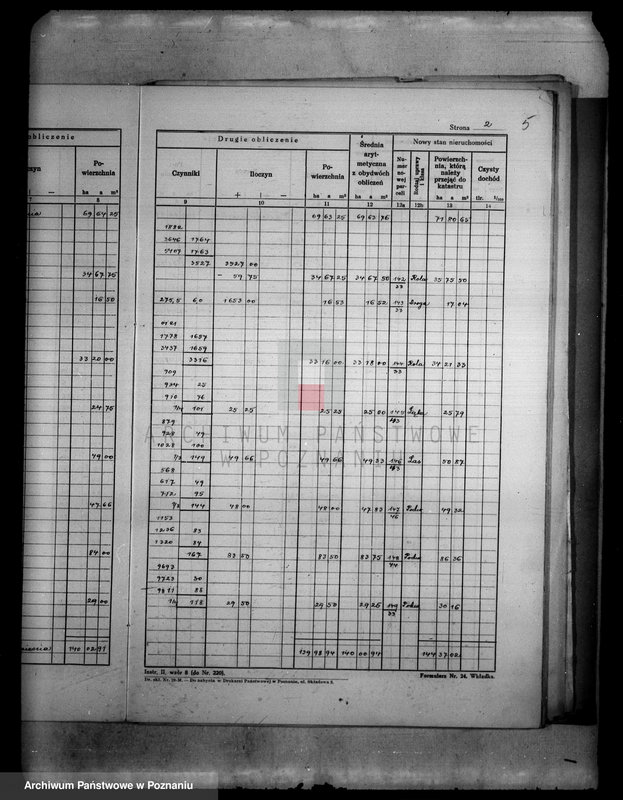 Strona 2 5
obliczenie
Po-
wierzchnia
ha a m²
7 8
69 64 25
34 67 75
16 50
33 20 00
24 75
49 00
47 66
84 00
29 00
140 02 91
Drugie obliczenie
Średnia
aryt-
metyczna
z obydwóch
obliczeń
Nowy stan nieruchomości
Czynniki
Iloczyn
Po-
wierzchnia
Nu-
mer
no-
wej
par-
celi
Rodzaj uprawy
i klasa
Powierzch-
nia, którą
należy
przejąć do
katastru
Czysty
dochód
+ | −
ha a m²
ha a m²
ha a m²
tlr.
9 10 11 12 12a 12b 13 14
69 63 25 69 63 76 71 80 65
3646 1764
5407 1763
3527 3527 00
− 59 75 34 67 25 34 67 50 142 Rola 35 75 50
33
275,5 60 1653 00 16 53 16 52 143 Droga 17 04
33
1778 1657
3437 1659
3316 33 16 00 33 18 00 144 Rola 34 21 33
33
709
934 25
910 76
101 25 25 25 25 25 00 145 Łąka 25 79
879
928 49
1028 100
149 49 66 49 66 49 33 146 Las 50 87
568
617 49
712 95
144 48 00 48 00 47 83 147 49 32
46
1153
1236 83
1320 84
167 83 50 83 50 83 75 148 86 36
44
9693
9723 30
9811 88
118 29 50 29 50 29 25 149 30 16
33
139 98 94 140 00 94 144 37 02
Instr. II, wzór 8 (do Nr. 220).
Formularz Nr. 24. Wkładka.
Dz. skł. Nr. 19-M. — Do nabycia w Drukarni Państwowej w Poznaniu, ul. Składowa 2.
ARCHIWUM PAŃSTWOWE
W POZNANIU
Archiwum Państwowe w Poznaniu